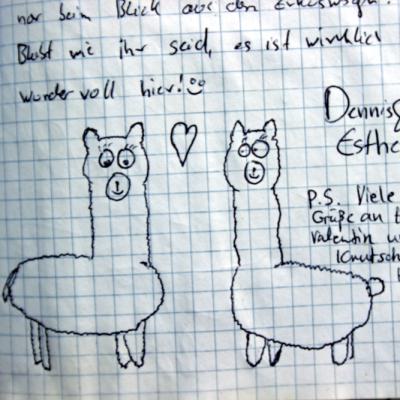 nor beim Blick aus den
Bleibt wie ihr seid, es ist wirklich
wundervoll hier!
Dennis
Esthe
P.S. Viele
Grüße an
Valentin
Knutsch